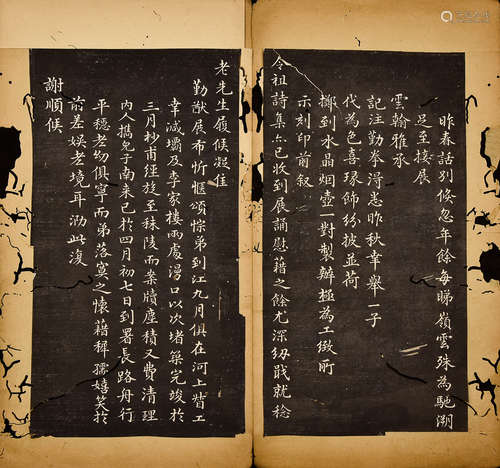 昨春話別倏忽年餘每睇嶺雲殊為馳溯
是至接展
雲翰雅承
記注勤拳淂悉昨秋幸舉一子
代為色喜瑑飾紛披並荷
擲到水晶烟壺一對製辦極為工緻所
示刻印前叙
令祖詩集亦已收到展誦慰藉之餘尤深紉戢就稔
老先生履候凝佳
勤猷展布忻愜頌悰弟到江九月俱在河上督工
幸減壩及李家樓兩處漫口以次堵築完竣於
三月杪甫經旋至秣陵而案牘塵積又費清理
内人携兒子南来已於四月初七日到署長路舟行
平穩老幼俱寧而弟落寞之懷藉稱孺嬉笑於
前差娛老境耳泐此復
謝順候